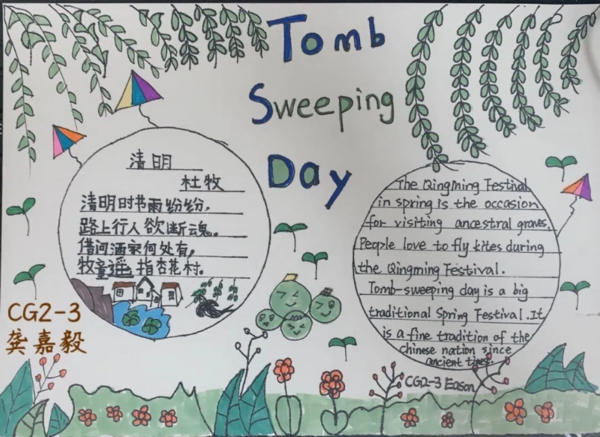 Tomb
Sweeping
Day
清明
杜牧
清明时节雨纷纷,
路上行人欲断魂。
借问酒家何处有,
牧童遥指杏花村.
CG2-3
龚嘉毅
The QingMing Festival
in spring is the occasion
for visiting ancestral graves.
People love to fly kites during
the Qingming Festival.
Tomb-sweeping day is a big
traditional Spring Festival. It
is a fine tradition of the
Chinese nation since
ancient times.
CG2-3 Eason